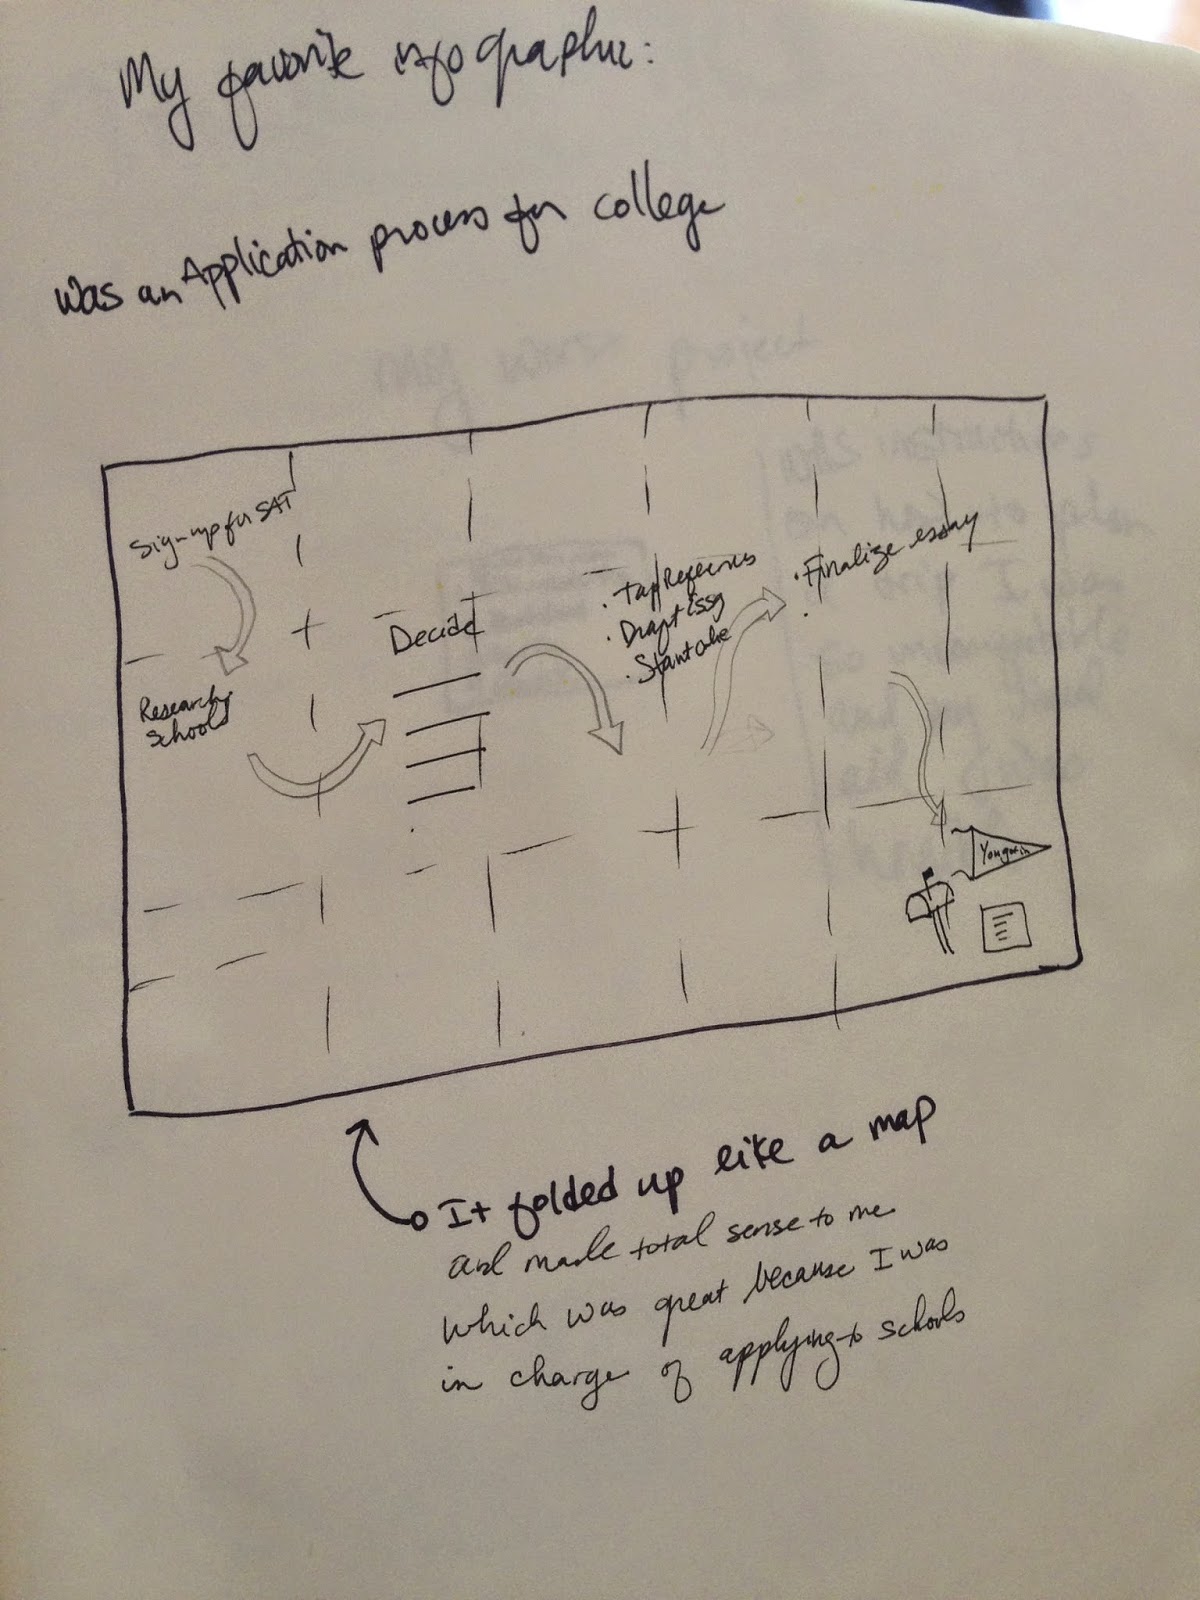 My favorite infographic:
was an Application process for college
Sign-up for SAT
Research
schools
Decide
• Tap References
• Draft Essy
• Start
• Finalize essay
It folded up like a map
and made total sense to me
which was great because I was
in charge of applying to schools
project